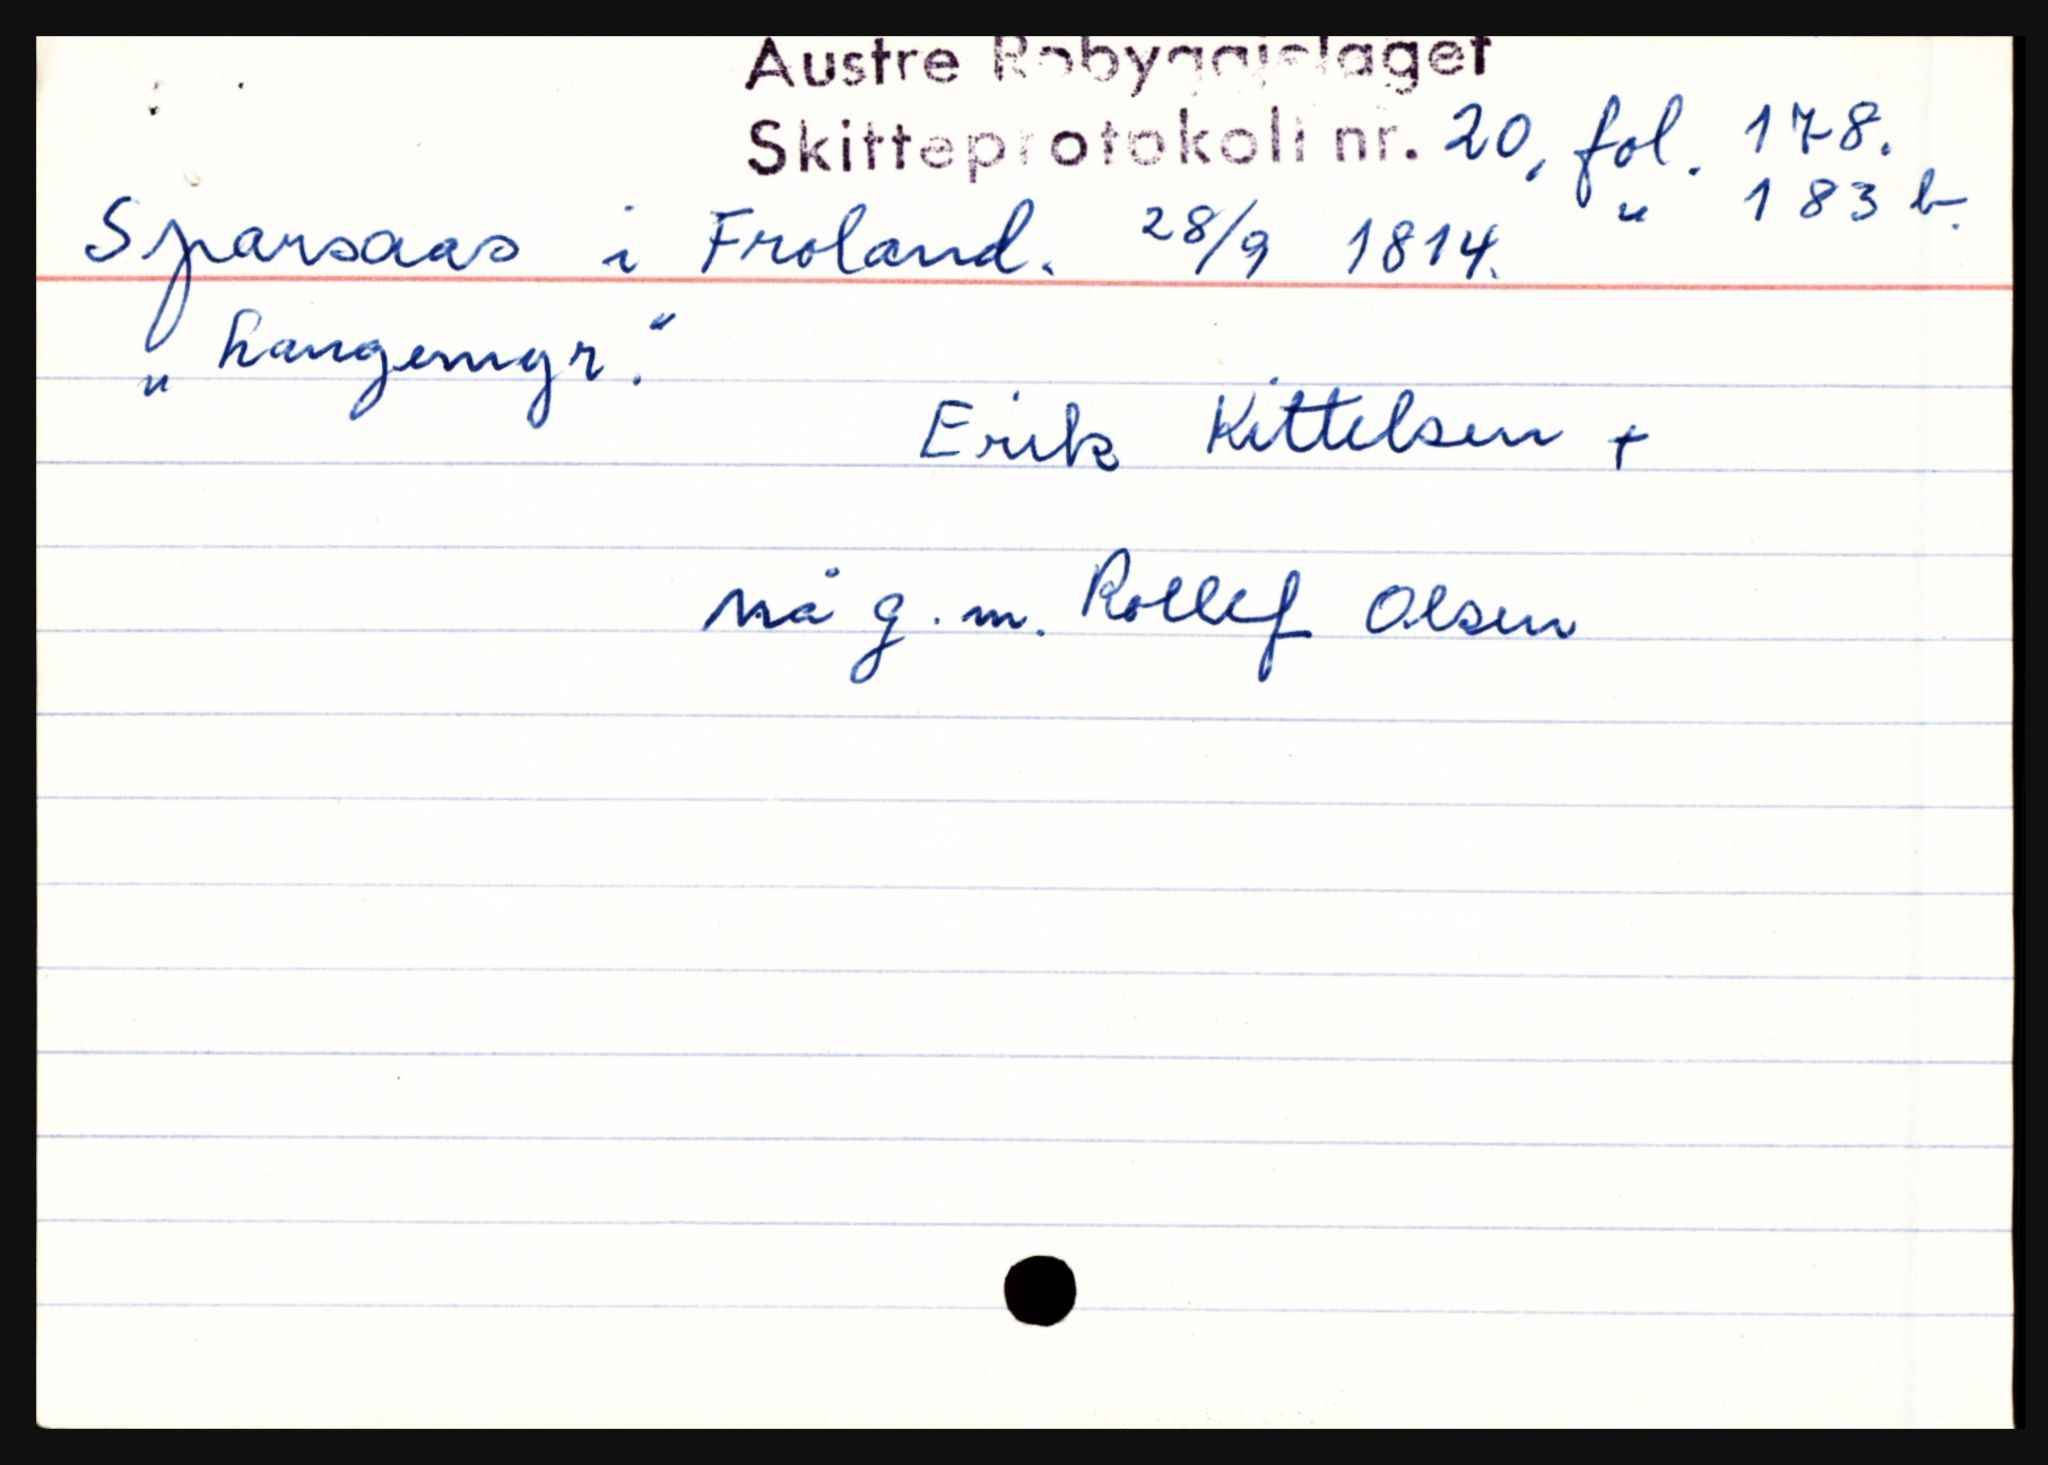 Austre Robyggjelaget
Skifteprotokoll nr. 20, fol. 178.
" 183 b.
Sparsaas i Froland. 28/9 1814.
"Langemyr."
Erik Kittelsen +
nå g.m. Rollef Olsen